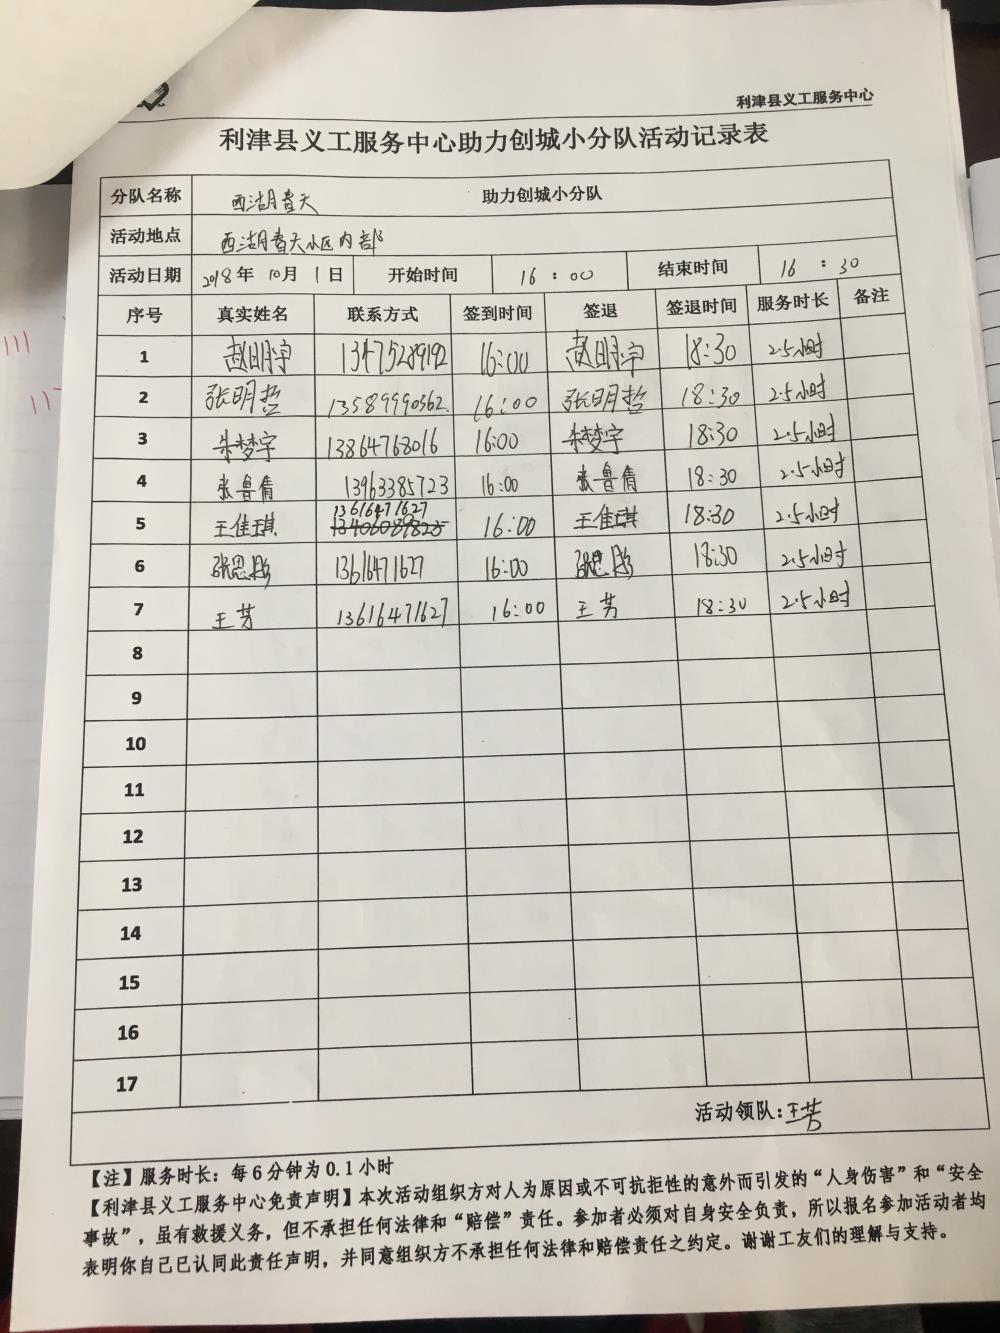 利津县义工服务中心
利津县义工服务中心助力创城小分队活动记录表
分队名称 西湖春天 助力创城小分队
活动地点 西湖春天小区内部
活动日期 2018年10月1日 开始时间 16:00 结束时间 16:30
序号 真实姓名 联系方式 签到时间 签退 签退时间 服务时长 备注
1 赵明宇 13475289192 16:00 赵明宇 18:30 2.5小时
2 张明哲 13589990362. 16:00 张明哲 18:30 2.5小时
3 朱梦宇 13864768016 16:00 朱梦宇 18:30 2.5小时
4 张鲁倩 13963385723 16:00 张鲁倩 18:30 2.5小时
13616471627
5 王佳琪 16:00 王佳琪 18:30 2.5小时
6 张思彤 13616471627 16:00 张思彤 18:30 2.5小时
7 王芳 13616471627 16:00 王芳 18:30 2.5小时
8
9
10
11
12
13
14
15
16
17
活动领队:王芳
【注】服务时长：每6分钟为0.1小时
【利津县义工服务中心免责声明】本次活动组织方对人为原因或不可抗拒性的意外而引发的“人身伤害”和“安全
事故”，虽有救援义务，但不承担任何法律和“赔偿”责任。参加者必须对自身安全负责，所以报名参加活动者均
表明你自己已认同此责任声明，并同意组织方不承担任何法律和赔偿责任之约定。谢谢工友们的理解与支持。